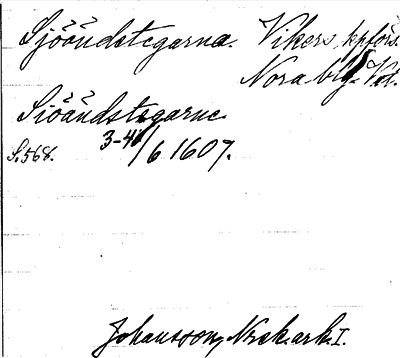 Sjöändstegarna. Vikers kpförs.
Nora blg. Vst.
Siöändstegarne
S. 568. 3-4/6 1607.
Johansson, Norak. ark. I.